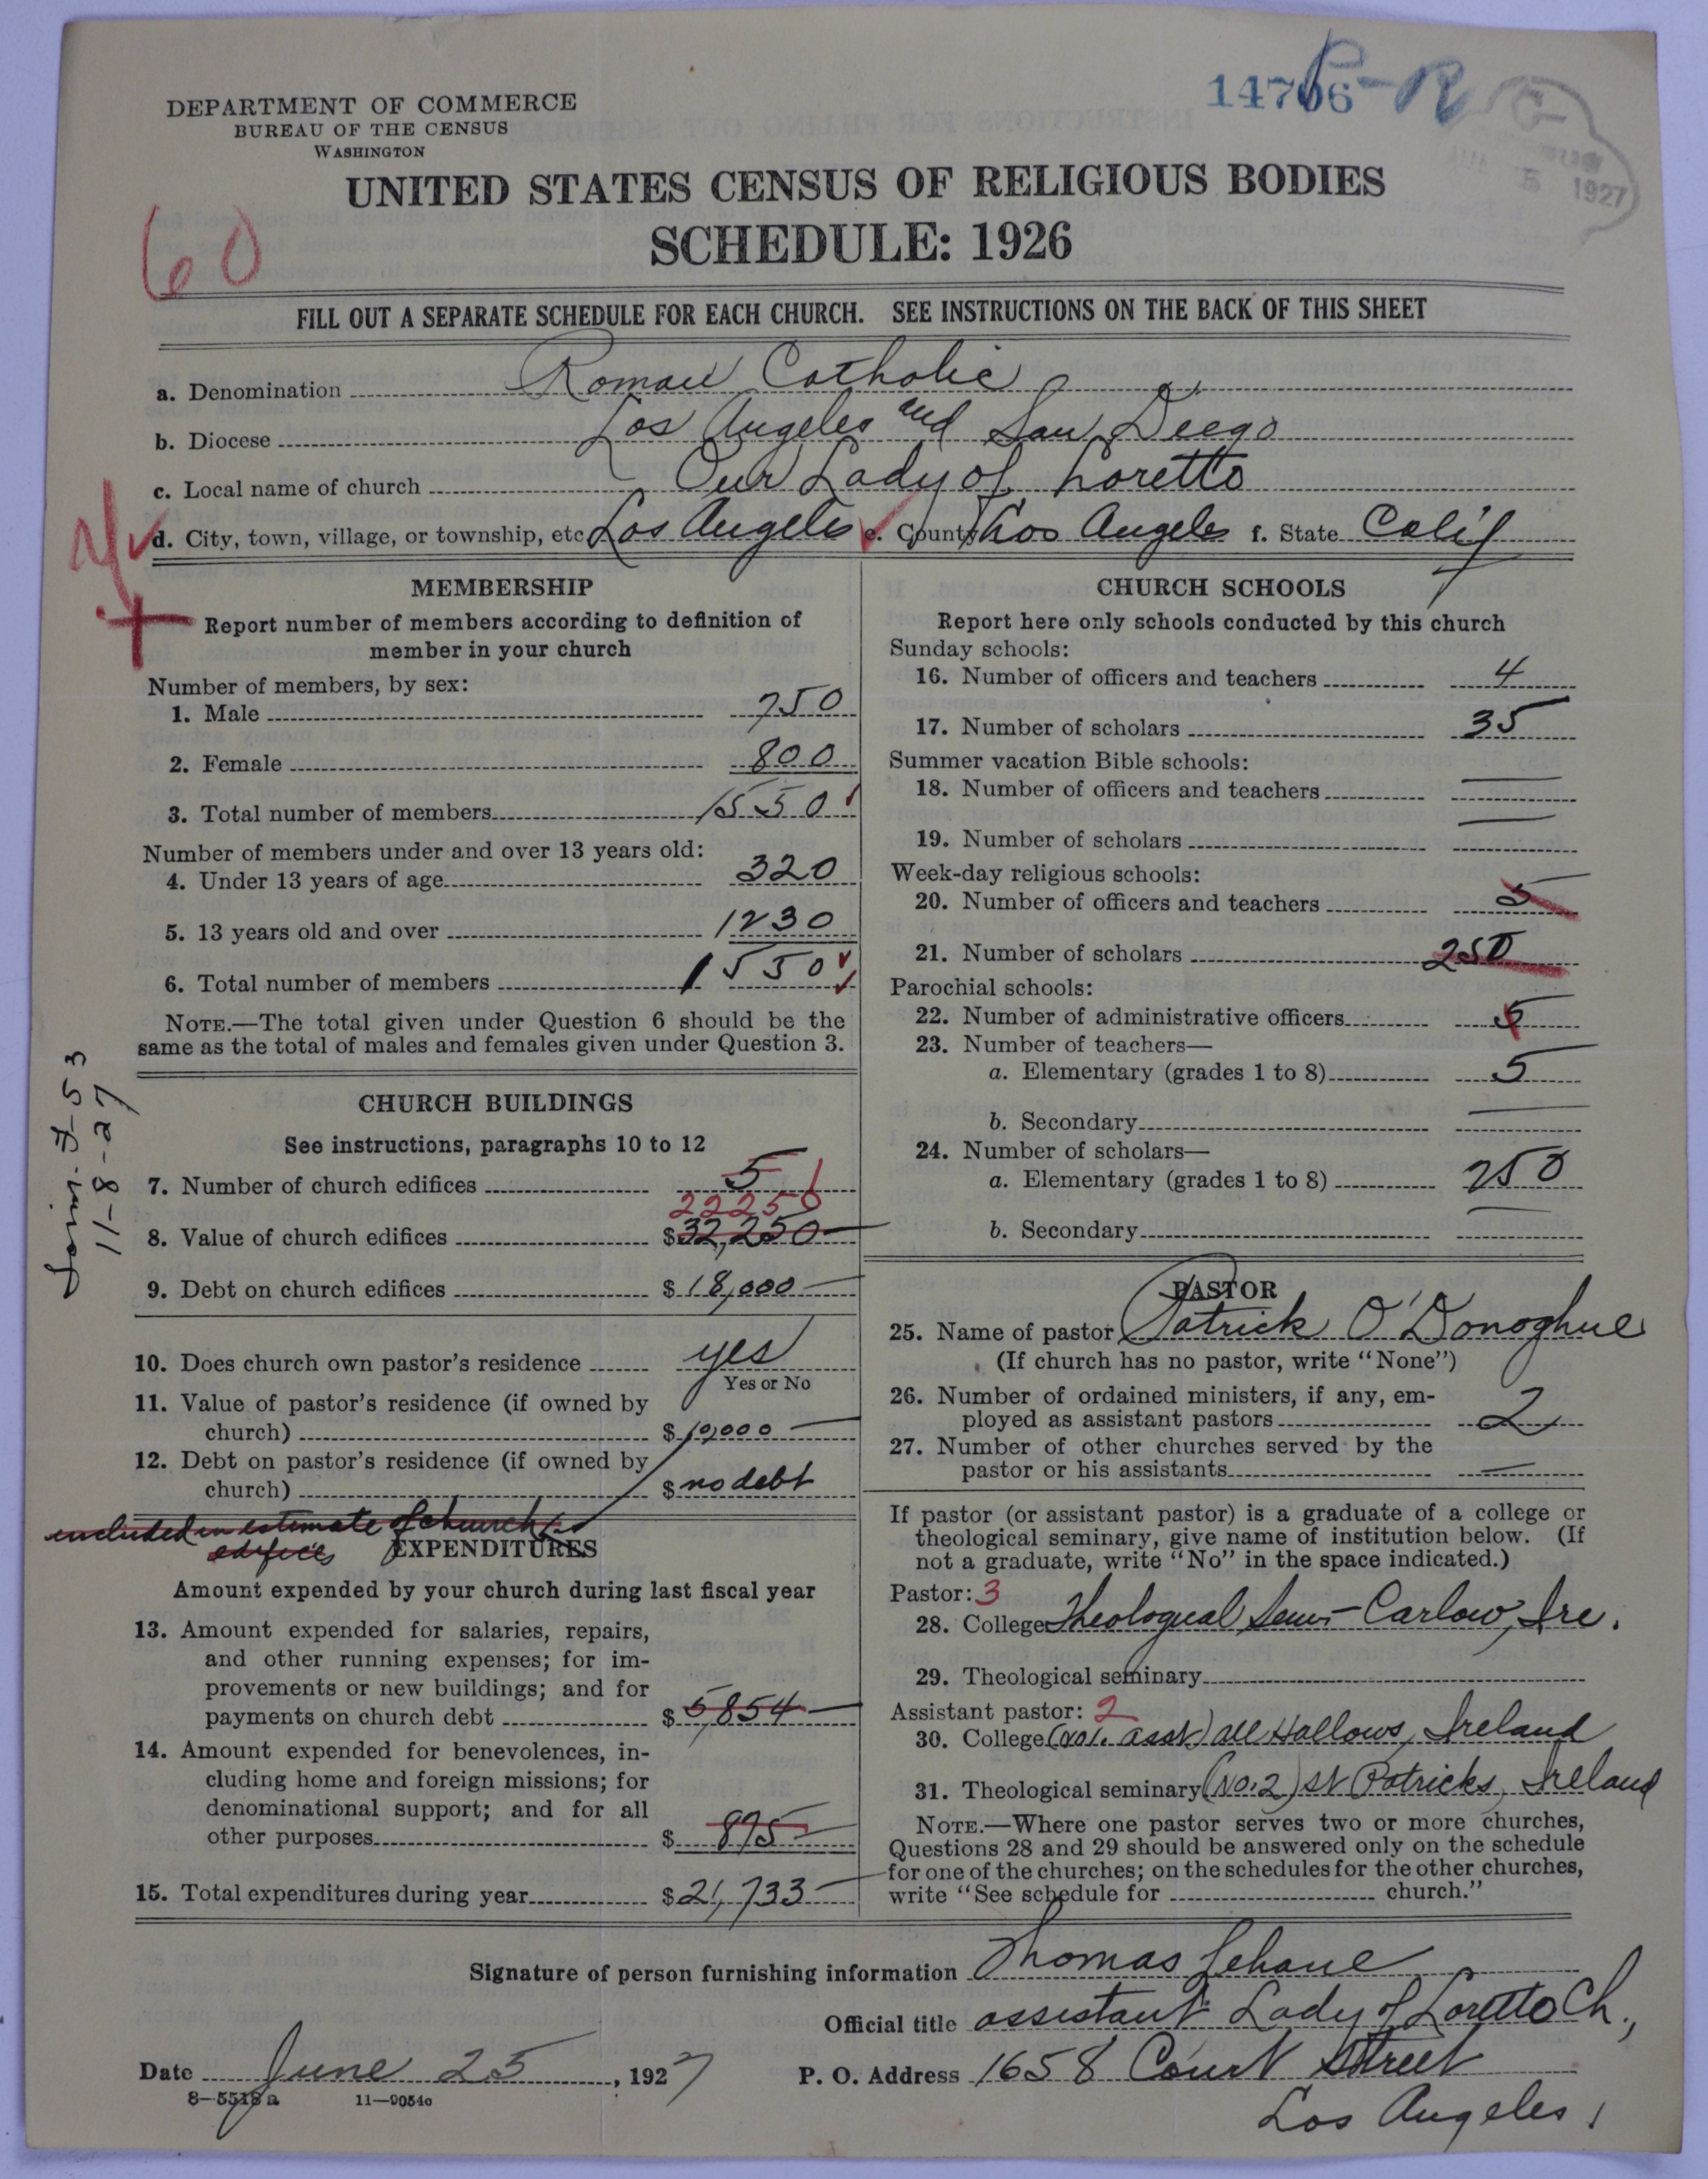 14706 P-R
C
5 1927
DEPARTMENT OF COMMERCE
BUREAU OF THE CENSUS
WASHINGTON
UNITED STATES CENSUS OF RELIGIOUS BODIES
SCHEDULE: 1926
60
FILL OUT A SEPARATE SCHEDULE FOR EACH CHURCH. SEE INSTRUCTIONS ON THE BACK OF THIS SHEET
a. Denomination Roman Catholic
b. Diocese Los Angeles and San Diego
c. Local name of church Our Lady of Loretto
d. City, town, village, or township, etc. Los Angeles e. County Los Angeles f. State Calif
MEMBERSHIP
Report number of members according to definition of
member in your church
Number of members, by sex:
1. Male 750
2. Female 800
3. Total number of members 1550
Number of members under and over 13 years old:
4. Under 13 years of age 320
5. 13 years old and over 1230
6. Total number of members 1550
NOTE.—The total given under Question 6 should be the
same as the total of males and females given under Question 3.
11-8-27
CHURCH BUILDINGS
See instructions, paragraphs 10 to 12
7. Number of church edifices 5 1
22250
8. Value of church edifices $32,250
9. Debt on church edifices $18,000
10. Does church own pastor's residence yes
Yes or No
11. Value of pastor's residence (if owned by
church) $10,000
12. Debt on pastor's residence (if owned by
church) $no debt
included in estimate of church
edifices
EXPENDITURES
Amount expended by your church during last fiscal year
13. Amount expended for salaries, repairs,
and other running expenses; for im-
provements or new buildings; and for
payments on church debt $5,854
14. Amount expended for benevolences, in-
cluding home and foreign missions; for
denominational support; and for all
other purposes $875
15. Total expenditures during year $21,733
CHURCH SCHOOLS
Report here only schools conducted by this church
Sunday schools:
16. Number of officers and teachers 4
17. Number of scholars 35
Summer vacation Bible schools:
18. Number of officers and teachers
19. Number of scholars
Week-day religious schools:
20. Number of officers and teachers 5
21. Number of scholars 250
Parochial schools:
22. Number of administrative officers 5
23. Number of teachers—
a. Elementary (grades 1 to 8) 5
b. Secondary
24. Number of scholars—
a. Elementary (grades 1 to 8) 250
b. Secondary
PASTOR
25. Name of pastor Patrick O'Donoghue
(If church has no pastor, write "None")
26. Number of ordained ministers, if any, em-
ployed as assistant pastors 2
27. Number of other churches served by the
pastor or his assistants —
If pastor (or assistant pastor) is a graduate of a college or
theological seminary, give name of institution below. (If
not a graduate, write "No" in the space indicated.)
Pastor: 3
28. College Theological Sem - Carlow, Ire.
29. Theological seminary
Assistant pastor: 2
30. College (No1. asst) All Hallows, Ireland
31. Theological seminary (No.2) St Patricks, Ireland
NOTE.—Where one pastor serves two or more churches,
Questions 28 and 29 should be answered only on the schedule
for one of the churches; on the schedules for the other churches,
write "See schedule for church."
Signature of person furnishing information Thomas Lehane
Official title assistant Lady of Loretto Ch.,
Date June 25, 1927 P. O. Address 1658 Court Street
8-5518a 11-9054c
Los Angeles,